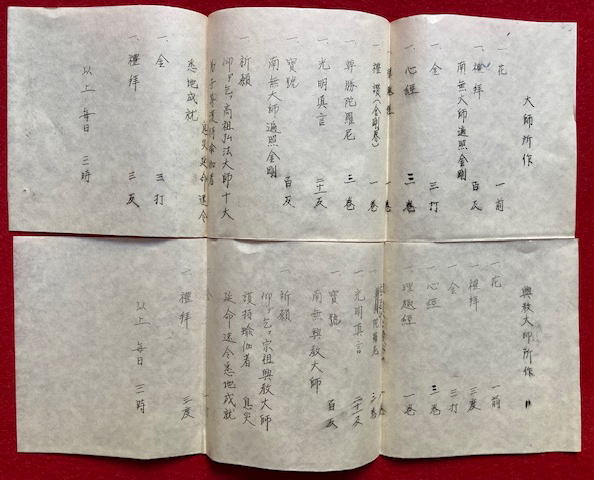 大師所作
一、花 一前
一、禮拝 百反
南無大師遍照金剛
一、金 三打
一、心經 三巻
一、禮讃(金剛巻) 一巻
一、尊勝陀羅尼 三巻
一、光明真言 二十一反
一、寳號
南無大師遍照金剛 百反
一、祈願
仰ギ乞フ高祖弘法大師十大
息災延命 速令
悉地成就
一、金 三打
一、禮拝 三反
以上 毎日 三時
興教大師所作
一、花 一前
一、禮拝 三度
一、金 三打
一、心經 三巻
一、理趣經 一巻
一、光明真言 二十一反
一、寳號
南無興教大師 百反
一、祈願
仰ギ乞フ宗祖興教大師
須持瑜伽者 息災
延命速令悉地成就
一、禮拝 三度
以上 毎日 三時